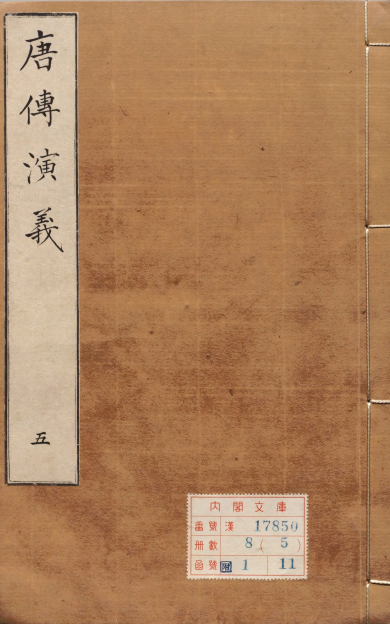 唐傳演義
五
内閣文庫
番號 漢 17850
册數 8(5)
函號 附 1 11